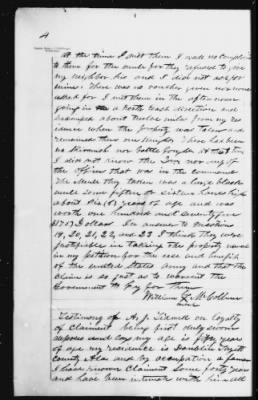 4
At the time I met them I made no complaint
to them for the mule for they refused to give
my neighbor his and I did not ask for
mine. There was no voucher given nor none
asked for I met them in the afternoon
going in a North East direction and
encamped about twelve miles from my res
idence when the property was taken and
remained there one night. There had been
no skirmish nor battle fought at that time
I did not know the Q.M. nor any of
the officers that was in the command
The Mule they taken was a large black
mule some fifteen or sixteen hands high
about Six (6) years of age and was
worth one hundred and Seventy five
$175) Dollars. In answer to questions
19, 20, 21, 22, and 23 I think they were
justifiable in taking the property named
in my petition for the use and benefit
of the united States army and that the
claim is so just as to warrant the
Government to pay for them
William
Testimony of A. J. on loyalty
of Claimant being first duly sworn
deposes and says my age is years
of age my residence is in Fayett
County Ala and by occupation a farmer
I have known Claimant some forty years
and have been intimate with him all